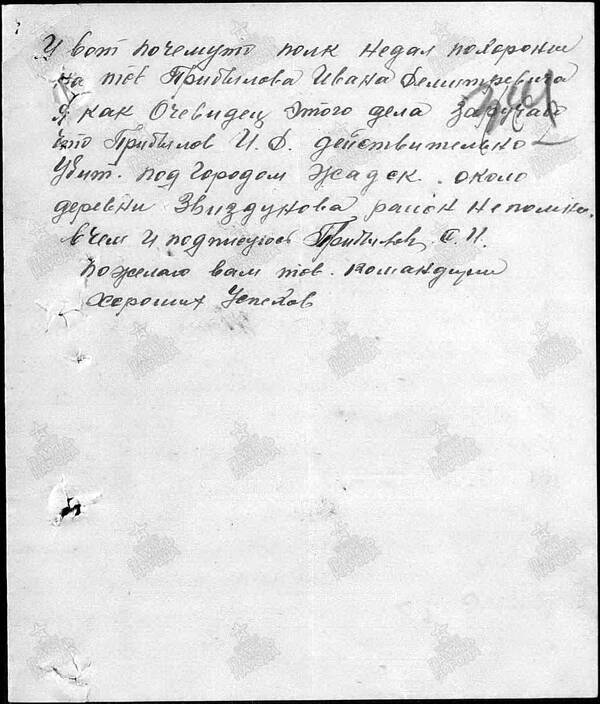 И вот почемуто полк недал похоронии
на тов Прибылова Ивана Делитревича
я как Очевидец этого дела
что Прибылов И. Д. действительно
Убит. под Городом Жадск. около
деревни Звиздунова район непомню.
в чем и подписуюсь Прибылов, С. И.
пожелаю вам тов. командири
хороших Успехов